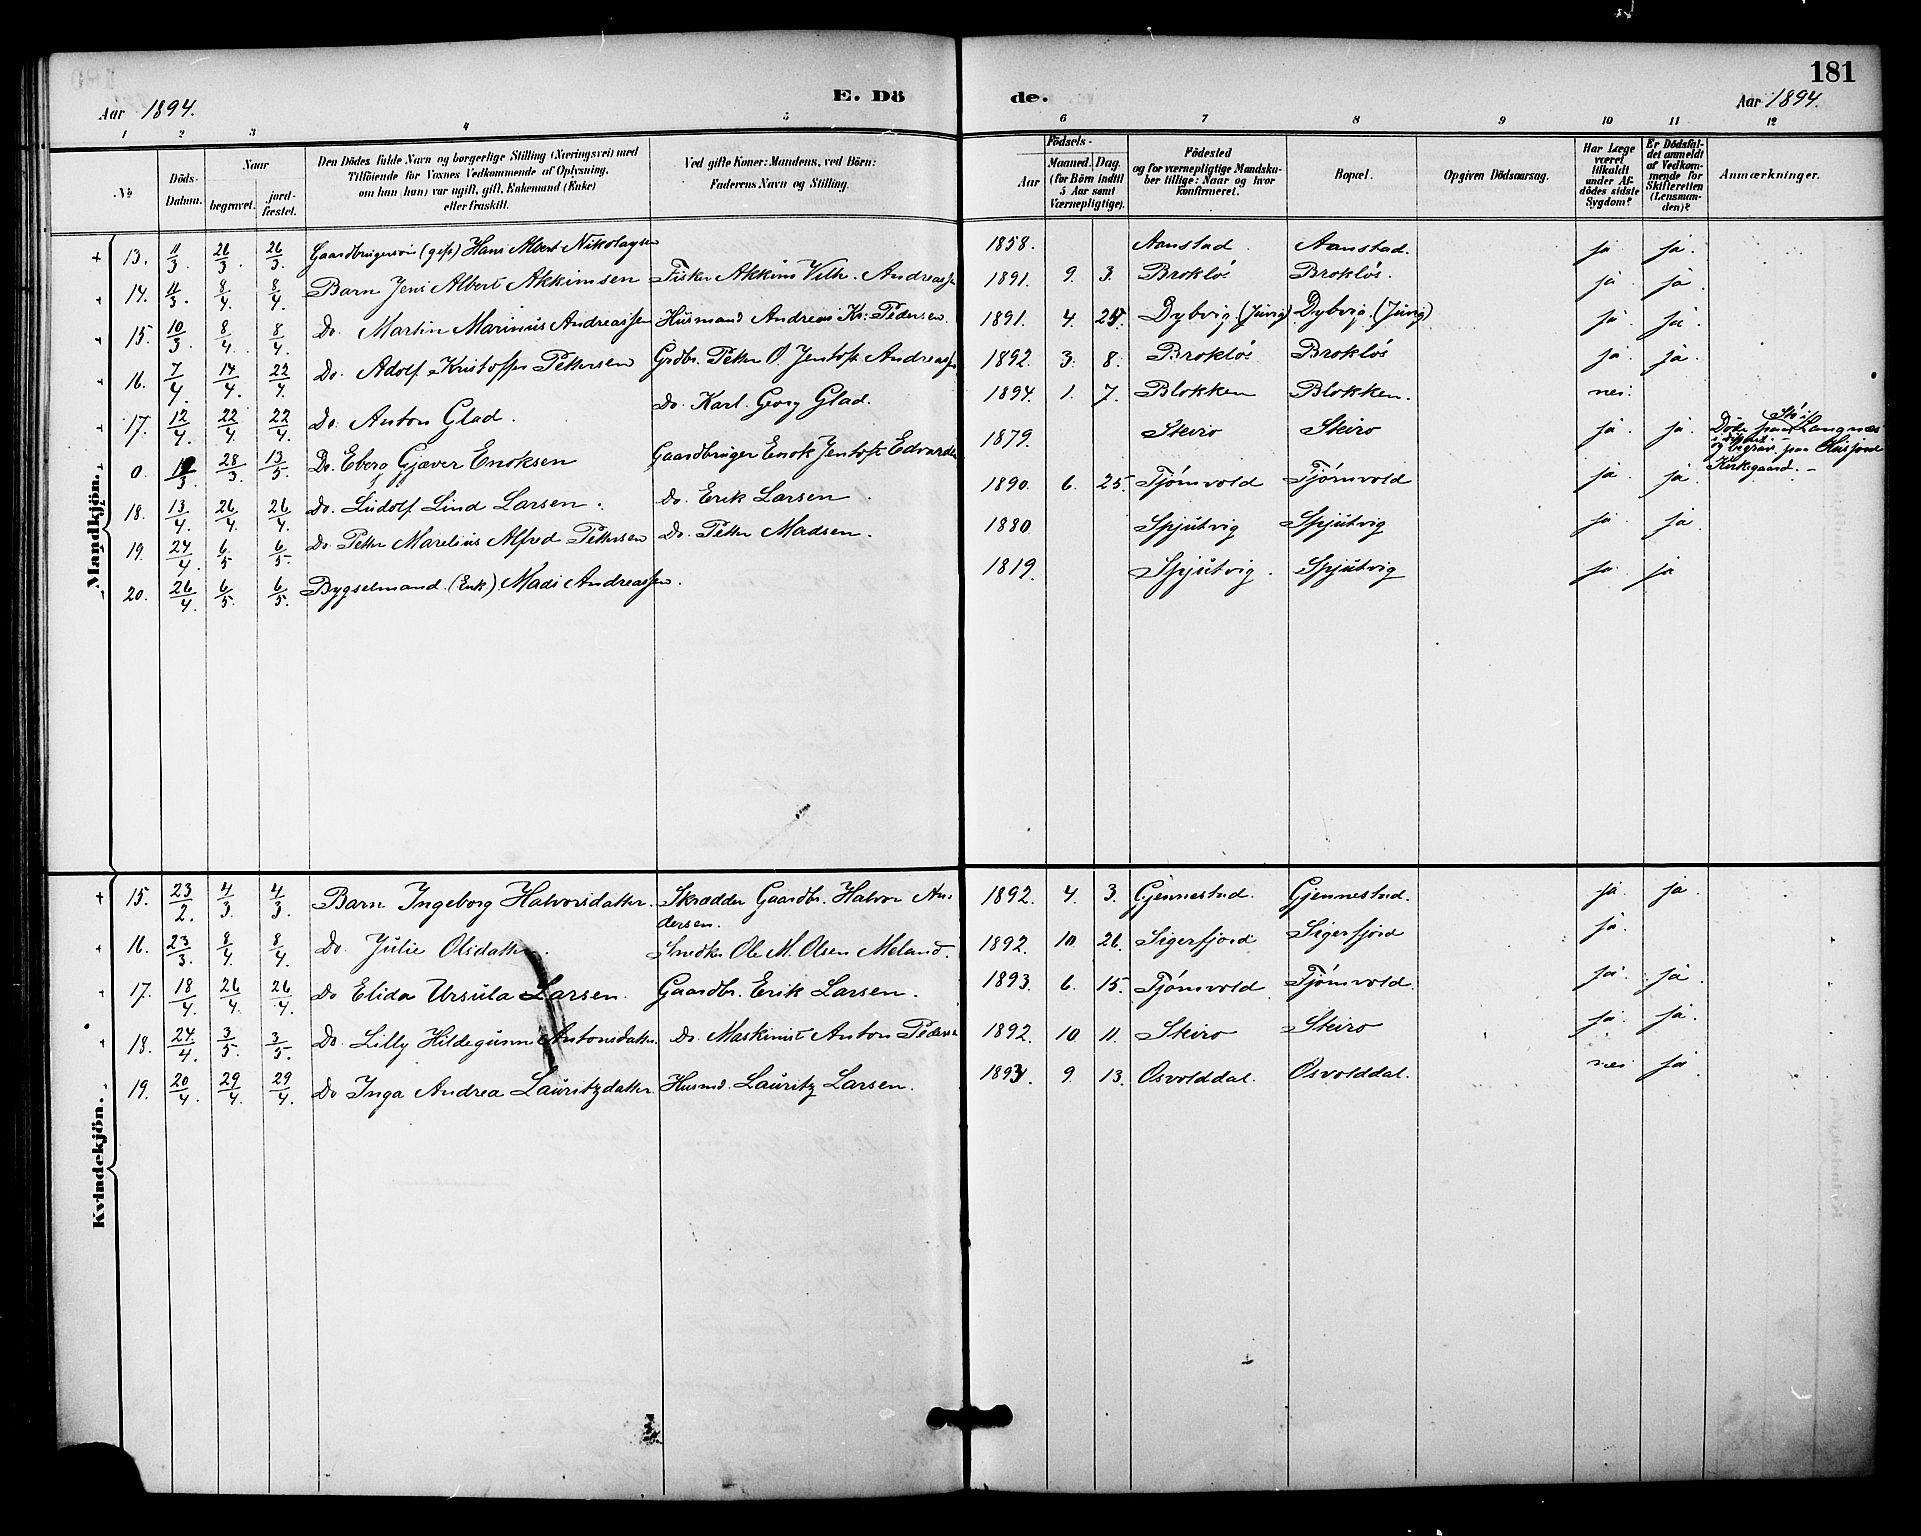 181
E. Dö de.
Aar 1894.
Aar 1894.
1 2 3 4 5 6 7 8 9 10 11 12
No
Döds-Datum.
Naar
begravet.
jord-fæstet.
Den Dödes fulde Navn og borgerlige Stilling (Næringsvei) med
Tilföiende for Voxnes Vedkommende af Oplysning,
om han (hun) var ugift, gift, Enkemand (Enke)
eller fraskilt.
Ved gifte Koner: Mandens, ved Börn:
Faderens Navn og Stilling.
Födsels-
Aar
Maaned. Dag.
(for Börn indtil
5 Aar samt
Værnepligtige).
Födested
og for værnepligtige Mandska-
ber tillige: Naar og hvor
konfirmeret.
Bopæl.
Opgiven Dödsaarsag.
Har Læge
været
tilkaldt
under Af-
dödes sidste
Sygdom?
Er Dödsfal-
det anmeldt
af Vedkom-
mende for
Skifteretten
(Lensman-
den)?
Anmærkninger.
Mandkjön.
13. 11/3 26/3. 26/3. Gaardbrugersön (gift) Hans Albert Nikolaysen 1858. Aanstad. Aanstad. ja ja.
14. 11/3. 8/4. 8/4. Barn Jens Albert Akkimsen Fisker Akkim Vilh. Andreass 1891. 9. 3. Brokløs Brokløs. ja. ja.
15. 10/3 8/4 8/4. Do. Martin Marinius Andreassen Husmand Andreas Kr. Pedersen. 1891. 4. 25. Dybvig (Jüvig) Dybvig (Jüvig) ja. ja.
16. 7/4 14/4 22/4. Do. Adolf Kristoffer Pettersen Grdbr. Petter O. Jentoft Andreass 1892. 3. 8. Brokløs Brokløs ja. ja.
17. 12/4. 22/4 22/4. Do. Anton Glad. Do. Karl. Georg Glad. 1894. 1. 7. Blokken Blokken. nei.
0. 19/3 28/3. 13/5 Do. Eberg Gjæver Enoksen Gaardbruger Enok Jentoft Edvards 1879. Skiro Skiro ja. ja. Döde paa Langnes
og begrav. paa Husjord
Kirkegaard. –
18. 13/4. 26/4. 26/4. Do. Ludolf Lind Larsen. Do. Erik Larsen. 1890. 6. 25. Tjømvold Tjømvold ja. ja.
19. 24/4. 6/5 6/5. Do. Petter Marelius Alfred Pettersen Do. Petter Madsen. 1880 Spjutvig Spjutvig ja. ja.
20. 26/4. 6/5. 6/5. Bygselmand. (Enk) Mads Andreassen. 1819. Spjutvig. Spjutvig ja. ja
Kvindekjön.
15. 23/2. 4/3. 4/3. Barn Ingeborg Halvorsdatter. Skrædder Gaardbr. Halvor An-
dersen. 1892. 4. 3. Gjennestad. Gjennestad. ja. ja.
16. 23/3. 8/4. 8/4. Do. Julie Olsdatter. Snedker Ole M. Olsen Meland. 1892. 10. 26. Sigerfjord Sigerfjord ja.
17. 18/4. 26/4. 26/4. Do Elida Ursula Larsen. Gaardbr. Erik Larsen. 1893. 6. 15. Tjømvold. Tjømvold. ja. ja.
18. 24/4. 3/5. 3/5. Do. Lilly Hildegunn Antonsdatter. Do. Maskinist Anton Peders 1892. 10. 11. Skiro Skiro ja. ja.
19. 20/4. 29/4. 29/4. Do Inga Andrea Lauritzdatter Husmd. Lauritz Larsen. 1893. 9. 13. Osvolddal. Osvolddal. nei ja.